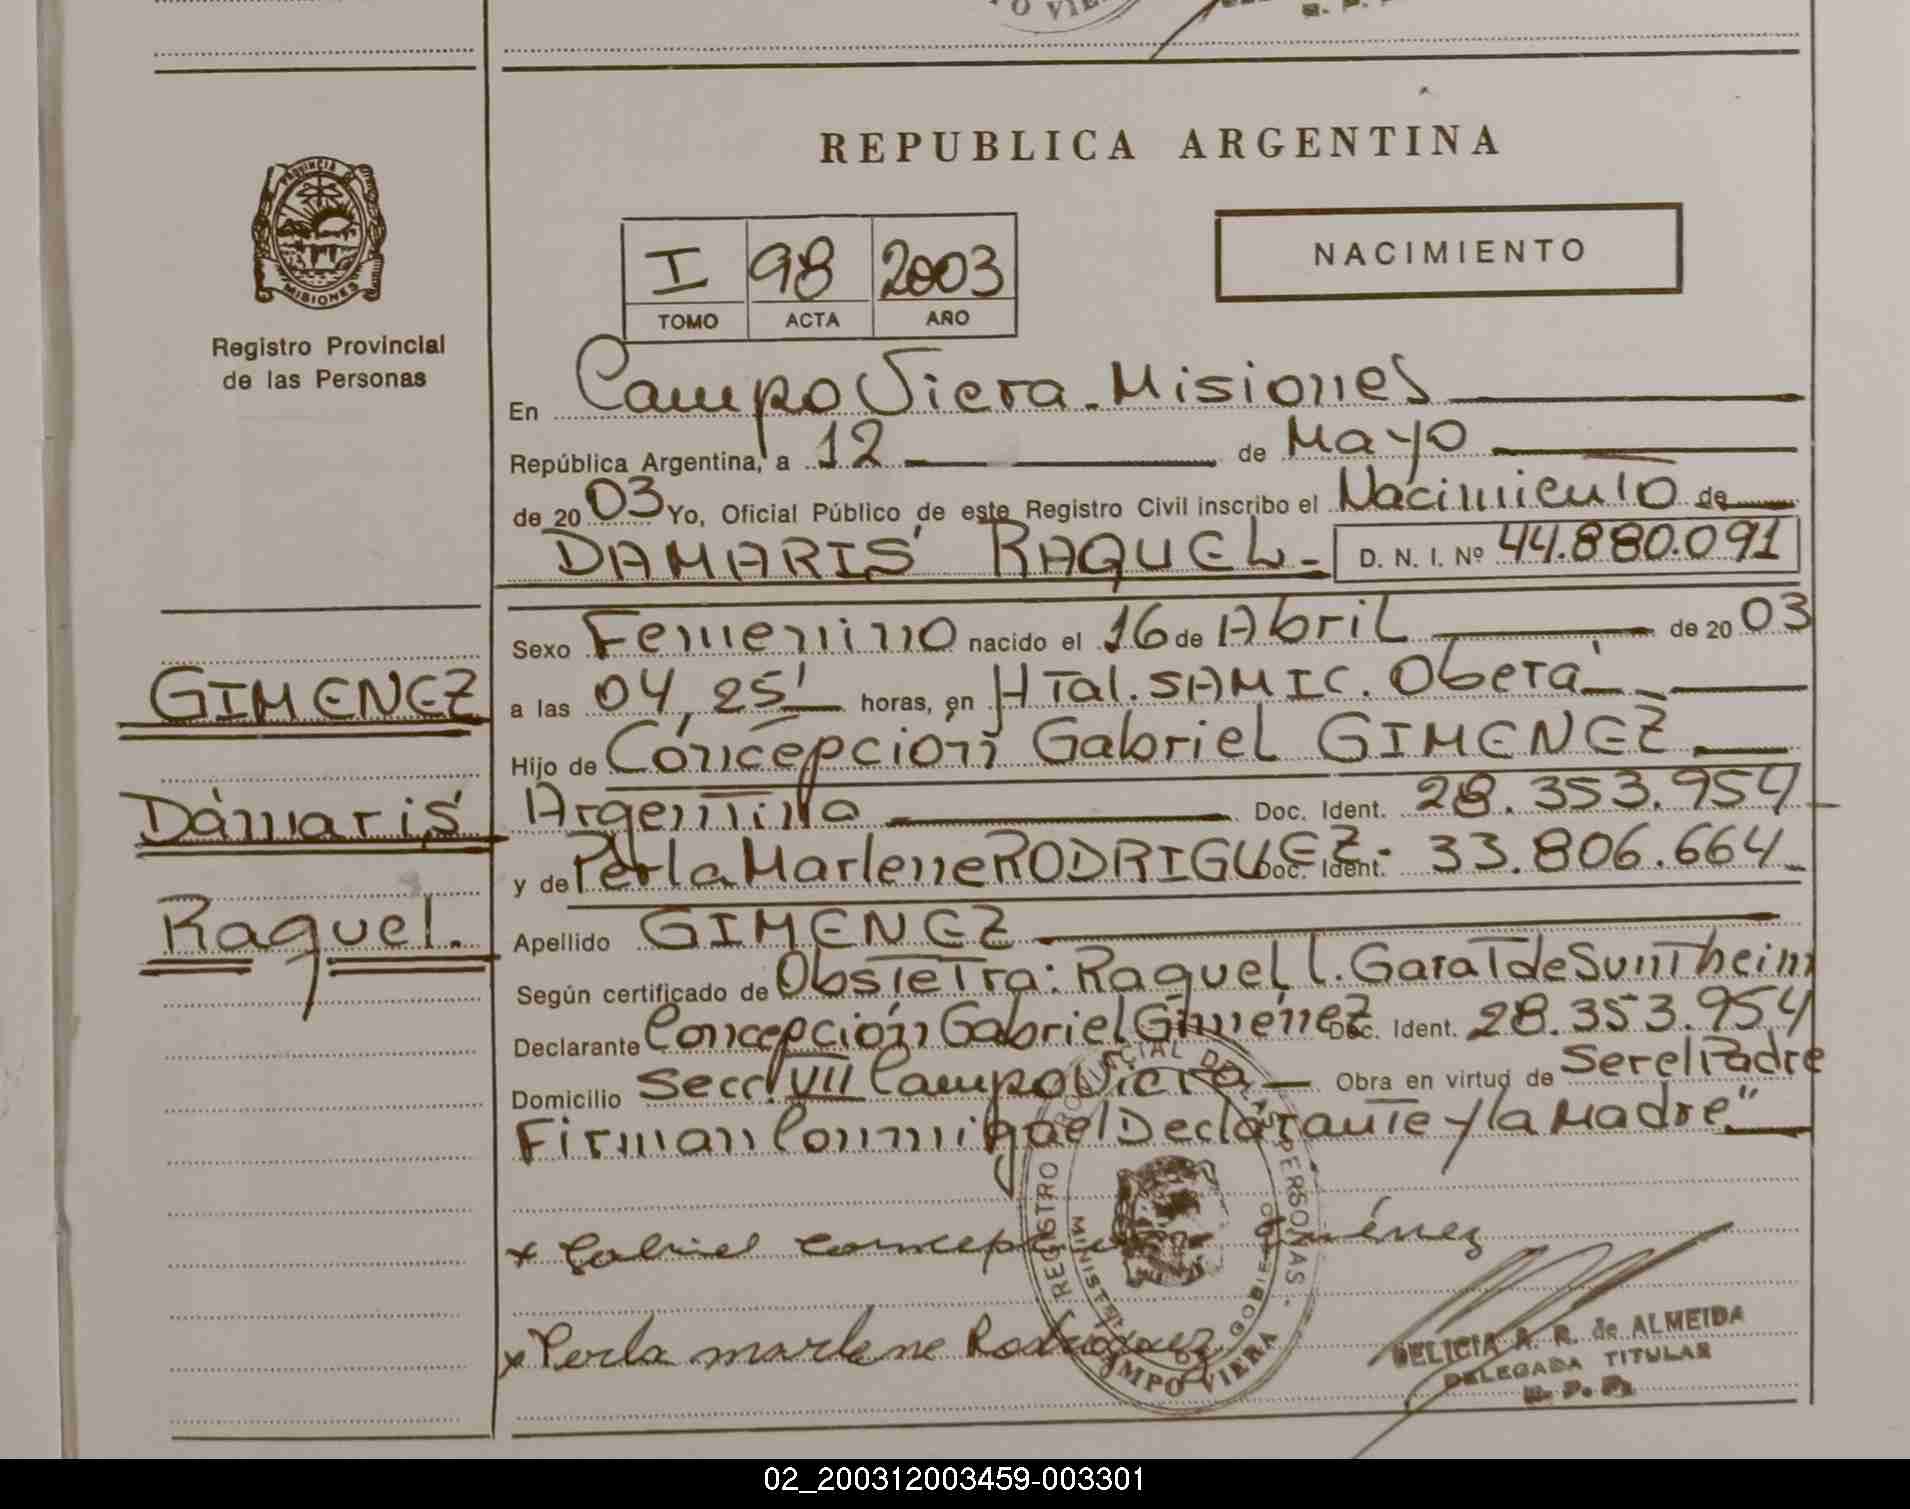 PROVINCIA DE
MISIONES
Registro Provincial
de las Personas
GIMENEZ
Dámaris
Raquel.
REPUBLICA ARGENTINA
I 98 2003
TOMO ACTA AÑO
NACIMIENTO
En Campo Viera - Misiones
República Argentina, a 12 de Mayo
de 2003 Yo, Oficial Público de este Registro Civil inscribo el Nacimiento de
DAMARIS RAQUEL - D. N. I. Nº 44.880.091
Sexo Femenino nacido el 16 de Abril de 2003
a las 04,25' horas, en HTal. SAMIC. Oberá
Hijo de Concepción Gabriel GIMENEZ
Argentino Doc. Ident. 28.353.954
y de Perla Marlene RODRIGUEZ - Doc. Ident. 33.806.664
Apellido GIMENEZ
Según certificado de Obstetra: Raquel l. Garat de Suntheim
Declarante Concepción Gabriel Giménez Doc. Ident. 28.353.954
Domicilio Secc. VII Campo Viera Obra en virtud de Ser el Padre
Firman Conmigo el Declarante y la Madre"
x Gabriel Concepción Giménez
x Perla marlene Rodriguez
REGISTRO PROVINCIAL DE PERSONAS
CAMPO VIERA
DELICIA A. R. de ALMEIDA
DELEGADA TITULAR
R. P. P.
02_200312003459-003301